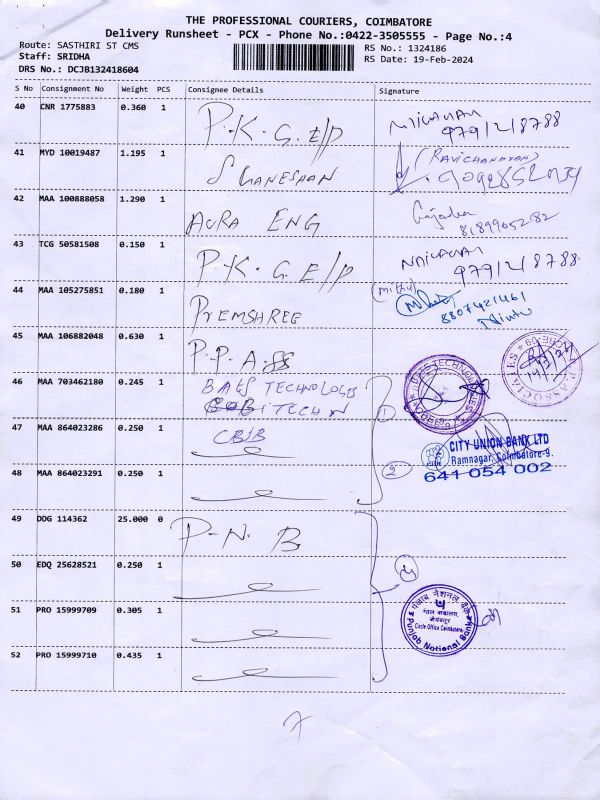 THE PROFESSIONAL COURIERS, COIMBATORE
Delivery Runsheet - PCX - Phone No.:0422-3505555 - Page No.:4
Route: SASTHIRI ST CMS
RS No.: 1324186
Staff: SRIDHA
RS Date: 19-Feb-2024
DRS No.: DCJB132418604
S No Consignment No Weight PCS Consignee Details Signature
40 CNR 1775883 0.360 1 P.K.G. E/P
979/218788
41 MYD 10019487 1.195 1
(RAVICHANDRAN)
42 MAA 100888058 1.290 1 AURA ENG
8189905282
43 TCG 50581508 0.150 1 P.K.G. E/P
979/218788
44 MAA 105275851 0.180 1 PREMSHREE
(Mithu)
8807421461
45 MAA 106882048 0.630 1 P.P.A
ASSOCIATES
46 MAA 703462180 0.245 1 BATS TECHNOLOGIES
1
47 MAA 864023286 0.250 1
CITY UNION BANK LTD
Ramnagar, Coimbatore-9.
641 054 002
2
48 MAA 864023291 0.250 1
49 DDG 114362 25.000 0 P.N.B.
50 EDQ 25628521 0.250 1
51 PRO 15999709 0.305 1
पंजाब नेशनल बैंक
Punjab National Bank
52 PRO 15999710 0.435 1
7